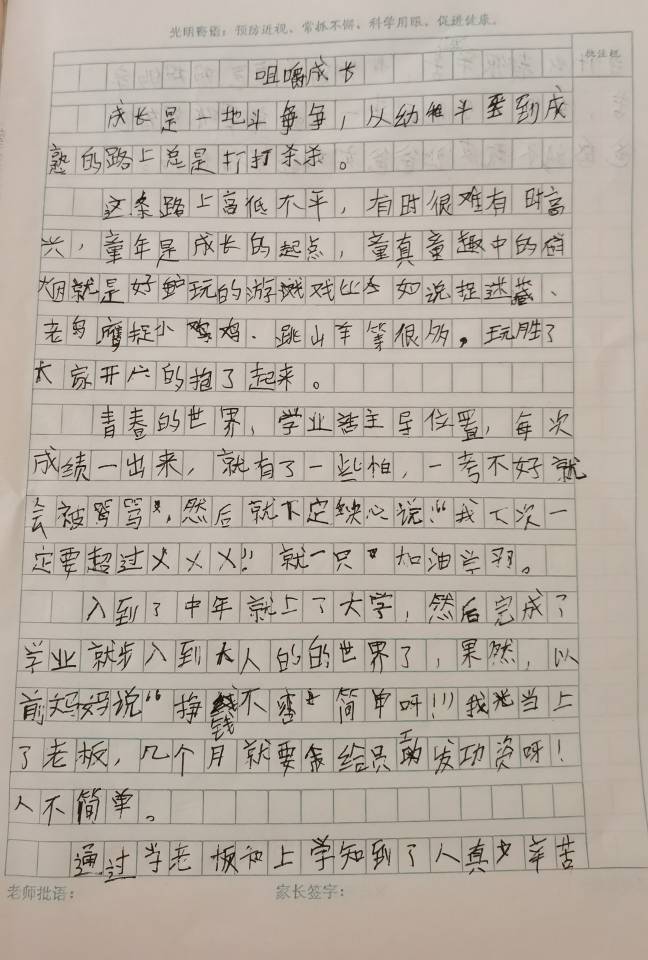 光明寄语：预防近视、常抓不懈、科学用眼、促进健康。
批注栏
咀嚼成长
成长是一地斗争争，从幼稚斗要到成
熟的路上总是打打杀杀。
这条路上高低不平，有时很难有时高
兴，童年是成长的起点，童真童趣中的
就是好玩的游戏戏比如说捉迷藏、
老鹰捉小鸡鸡．跳山羊等很多。玩胜了
大家开心的抱了起来。
青春的世界，学业占主导位置，每次
成绩一出来，就有了一些怕，一考不好就
会被骂骂，然后就下定决心说“我下次一
定要超过XXX”就一只加油学习。
入到了中年就上了大学，然后完成了
学业就步入到大人的的世界了，果然，以
前妈妈说“挣钱不容简单呀!!!我当上
了老板，几个月就要给员工发功资呀！
人不简单。
通过当老板初上学知到了人真辛苦
老师批语：
家长签字：